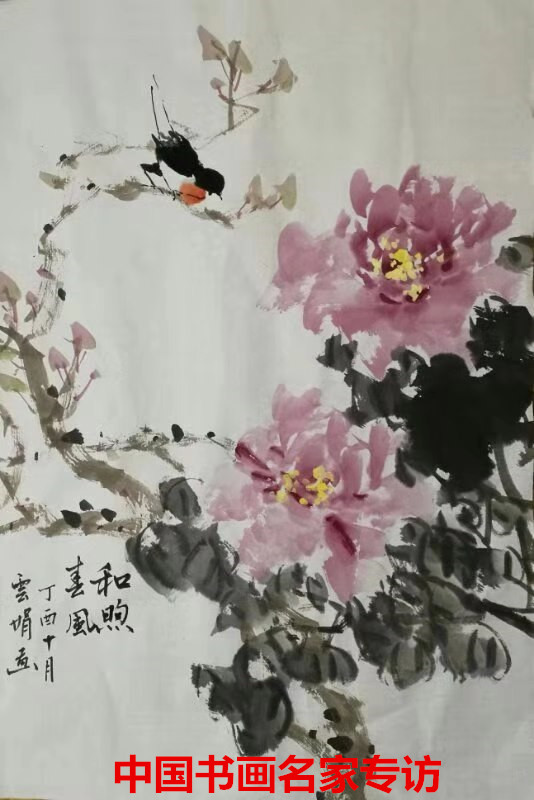 和煦
春風
丁酉十月
雲娟画
中国书画名家专访